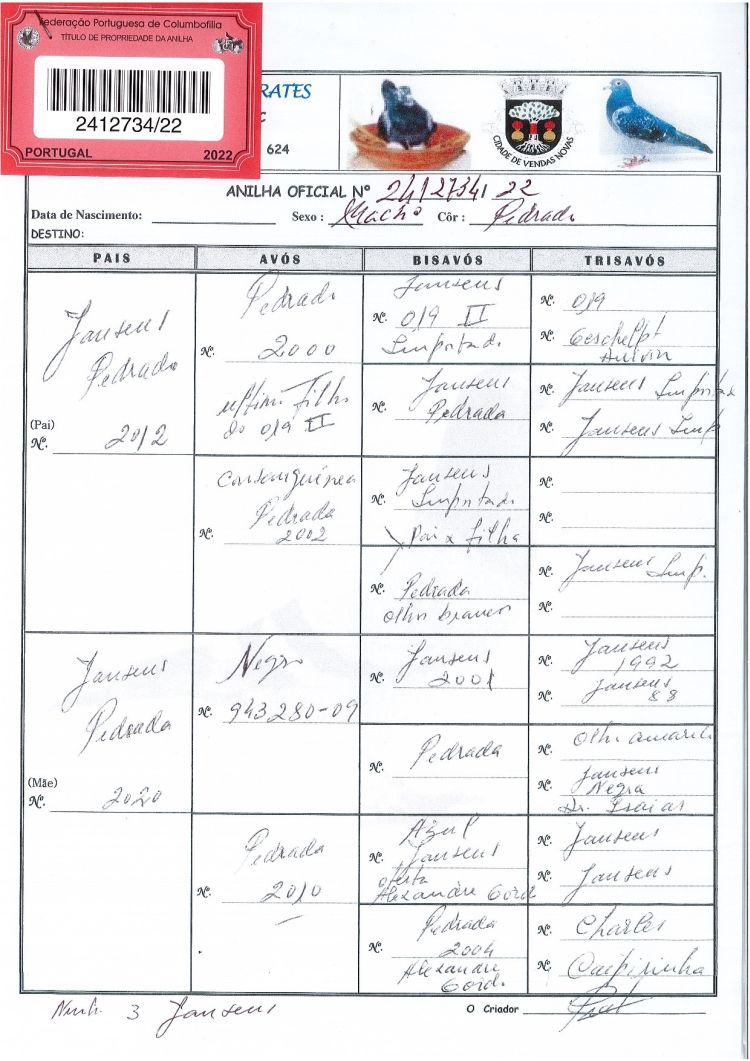 Federação Portuguesa de Columbofilia
TÍTULO DE PROPRIEDADE DA ANILHA
2412734/22
PORTUGAL 2022
RATES
C
624
CIDADE DE VENDAS NOVAS
ANILHA OFICIAL Nº 2412734/22
Data de Nascimento: Sexo: Macho Côr: Pedrado
DESTINO:
PAIS AVÓS BISAVÓS TRISAVÓS
Jansens
Pedrado
(Pai)
Nº. 2012
Pedrado
Nº. 2000
ultimo filho
do 019 II
Jansens
Nº. 019 II
Importado
Nº. 019
Nº.
Jansens
Nº. Pedrada
Nº. Jansens Importado
Nº. Jansens Imp
Consanguínea
Pedrada
Nº. 2002
Jansens
Nº. Importado
Pai x filha
Nº.
Nº.
Nº. Pedrada
olho branco
Nº. Jansens Imp.
Nº.
Jansens
Pedrada
(Mãe)
Nº. 2020
Negro
Nº. 943280-09
Jansens
Nº. 2001
Nº. Jansens
1992
Nº. Jansens
88
Pedrada
Nº.
Nº. Olho amarelo
Nº. Jansens
Negra
Dr. Isaias
Pedrada
Nº. 2010
Azul
Nº. Jansens
oferta
Alexandre Gord
Nº. Jansens
Nº. Jansens
Pedrada
Nº. 2004
Alexandre
Gordo
Nº. Charles
Nº. Caipirinha
3 Jansens
O Criador